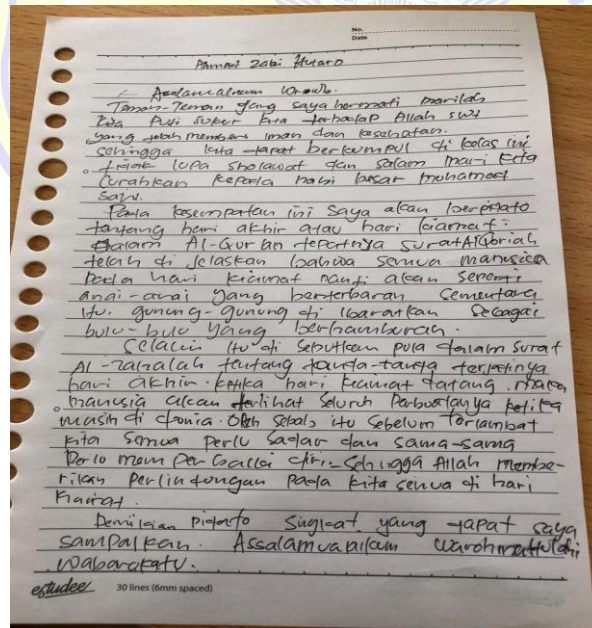 No.
Date
Ahmad Zaki Mutaro
Assalamualaikum wr.wb.
Teman-Teman yang saya hormati marilah
kita puji sukur kita terhadap Allah swt
yang telah memberi iman dan kesehatan.
sehingga kita dapat berkumpul di kelas ini
tidak lupa sholawat dan salam mari kita
Curahkan kepada nabi besar muhamad
Saw.
Pada kesempatan ini saya akan berpidato
tentang hari akhir atau hari kiamat.
Dalam Al-Qur'an tepatnya surat Al Qoriah
telah di jelaskan bahwa semua manusia
Pada hari kiamat nanti akan seperti
anai-anai yang berterbaran Sementara
itu. gunung-gunung di ibaratkan Sebagai
bulu-bulu yang berhamburan.
Selain itu di sebutkan pula dalam surat
Al-zalzalah tentang tanda-tanda terjadinya
hari akhir. ketika hari kiamat datang. maka
manusia akan terlihat seluruh Perbuatanya ketika
masih di dunia. Oleh sebab itu sebelum Terlambat
kita Semua perlu Sadar dan sama-sama
Perlu mem per baiki diri-Sehingga Allah membe-
rikan Perlindungan Pada kita semua di hari
kiamat.
Demikian Pidato Singkat yang dapat saya
sampaikan. Assalamuapilam warohmattulahi
Wabarakatu.
estudee 30 lines (6mm spaced)